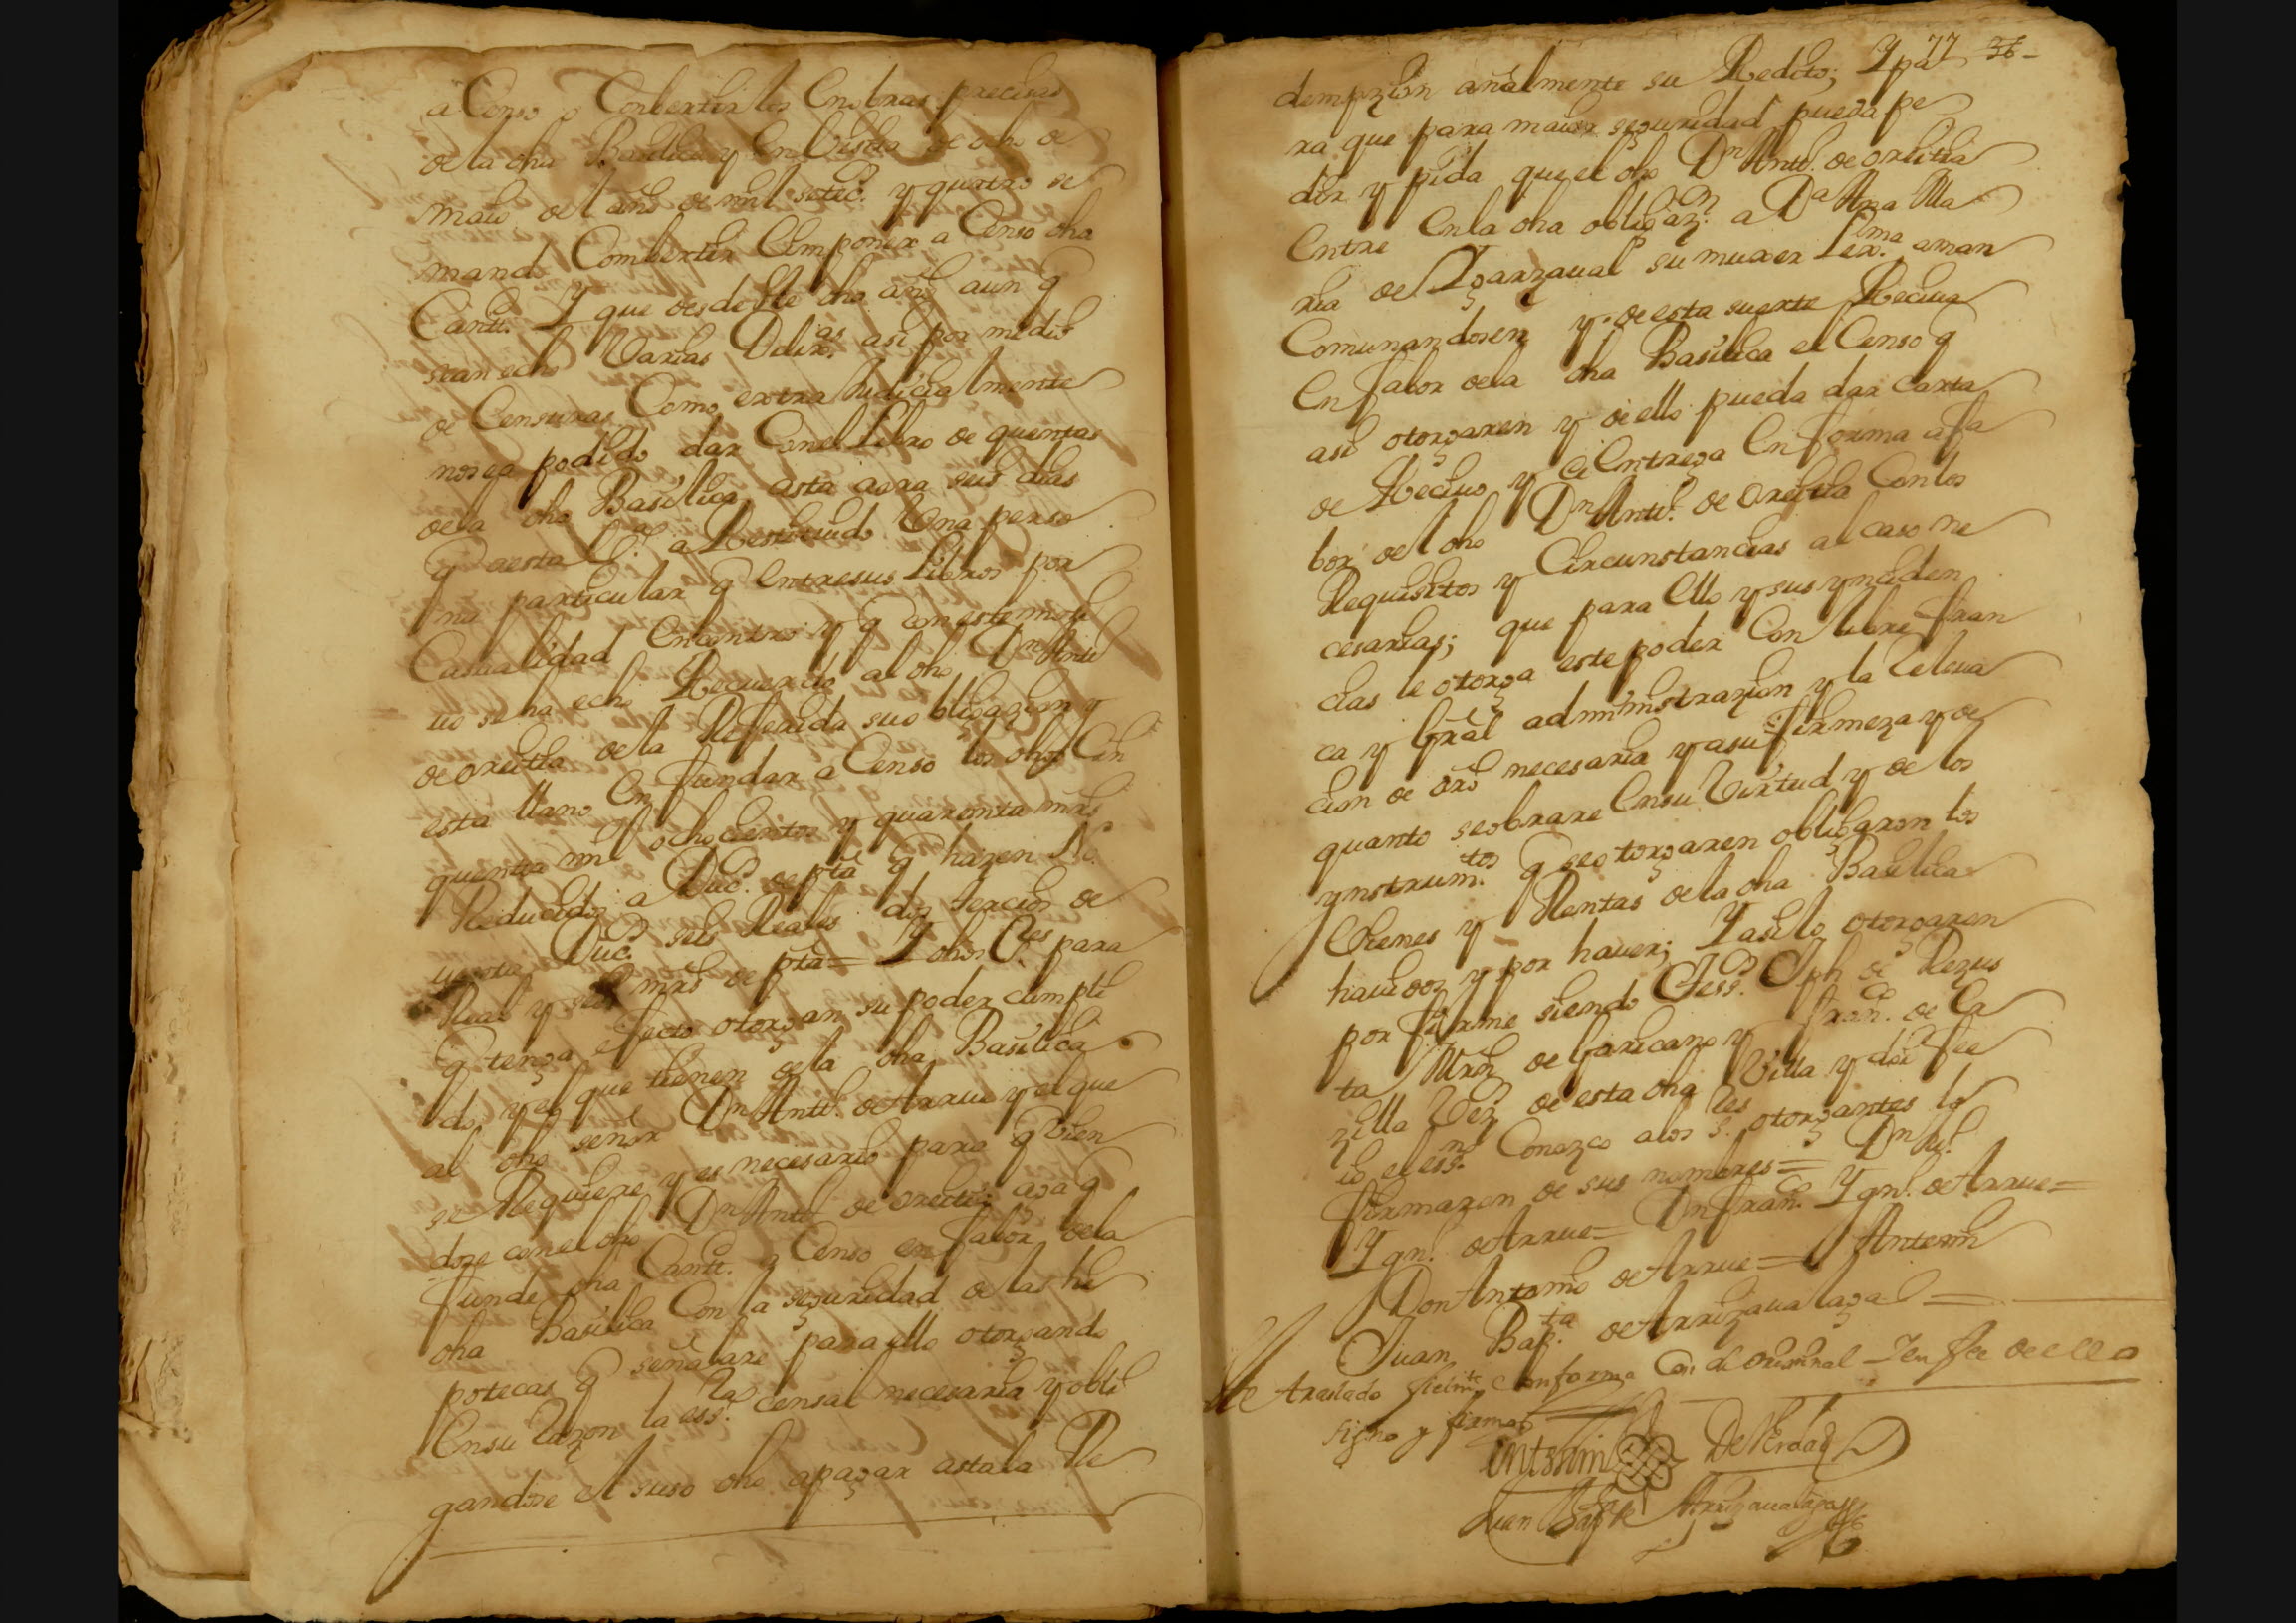 a Censo o Conbertirlos En obras precisas
de la dha Basilica y En Vista de ocho de
maio del año de mil setec.s y quatro se
mando Combertir Eimponer a Censo dha
Cantt. Y que desde este dho año aun q
sean echo Varias Dilix.as asi por medio
de Censuras Como extra Judicialmente
nosea podido dar Con el Libro de quentas
dela dha Basilica asta aora seis dias
q aesta a Restituido Vna perso
na particular q Entresus Libros por
Casualidad Encontro y q con este moti
uo se ha echo Recuerdo al dho Dn Antt.
de oreitia de la Referida su obligazion y
esta llano En fundar a Censo los dhos Cin
quenta mil ochocientos y quarenta mrs
Reducidos a Duc.s de pta q hazen
Duc.s seis Reales dos tercios de
Real y seis mrs de pta = Y dhos para
q tenga efecto otorgan su poder cumpli
do y el que tienen de la dha Basilica
al dho señor Dn Antt. de Arrue y el que
se Requiere y es necesario para q Vien
dose con el dho Dn Antt. de oreitia aga q
funde dha Cantt. a Censo en fabor dela
dha Basilica Con la seguridad de las hi
potecas q señalare para ello otorgando
Ensu Razon la ess.ra censal necesaria y obli
gandose el suso dho apagar astala Re
77 36
dempzion añalmente su Redito; Y pa
ra que para maior seguridad pueda pe
dir y pida que el dho Dn Antt. de oreitia
Entre En la dha obligaz.n a Da Ana Ma
ria de Ygarzaual su muxer Lex.ma aman
Comunandosen y de esta suerte Reciua
En fabor dela dha Basilica el Censo q
asi otorgaren y de ello pueda dar Carta
de Reciuo y Entrega En forma a fa
bor del dho Dn Antt. de Oreitia Con los
Requisitos y Circunstancias al caso ne
cesarias; que para Ello y sus ynciden
cias le otorga este poder Con libre fran
ca y Gral administrazion y la Releua
cion de dro necesaria y asu firmeza y de
quanto seobrare Ensu Virtud y de los
ynstrum.tos q seotorgaren obligaron los
Vienes y Rentas de la dha Basilica
hauidos y por hauer; Y asi lo otorgaron
por firme siendo Tess.s Jph de Rezus
ta Mrn de Garicano y Fran.co de Ca
zilla Vez.s de esta dha Villa y doi fee
io el ess.no Conozco alos otorgantes lo
firmaron de sus nombres = Dn
Ygn.o de Arrue = Dn Fran.co Ygn.o de Arrue =
Don Antonio de Arrue = Antemi
Juan Bap.ta de Arrizaualaga =
traslado fielm.te Conforma Con el original Y en fee de ello
signo y firmo
En testim.o De Verdad
Juan Bap.ta Arrizaualaga